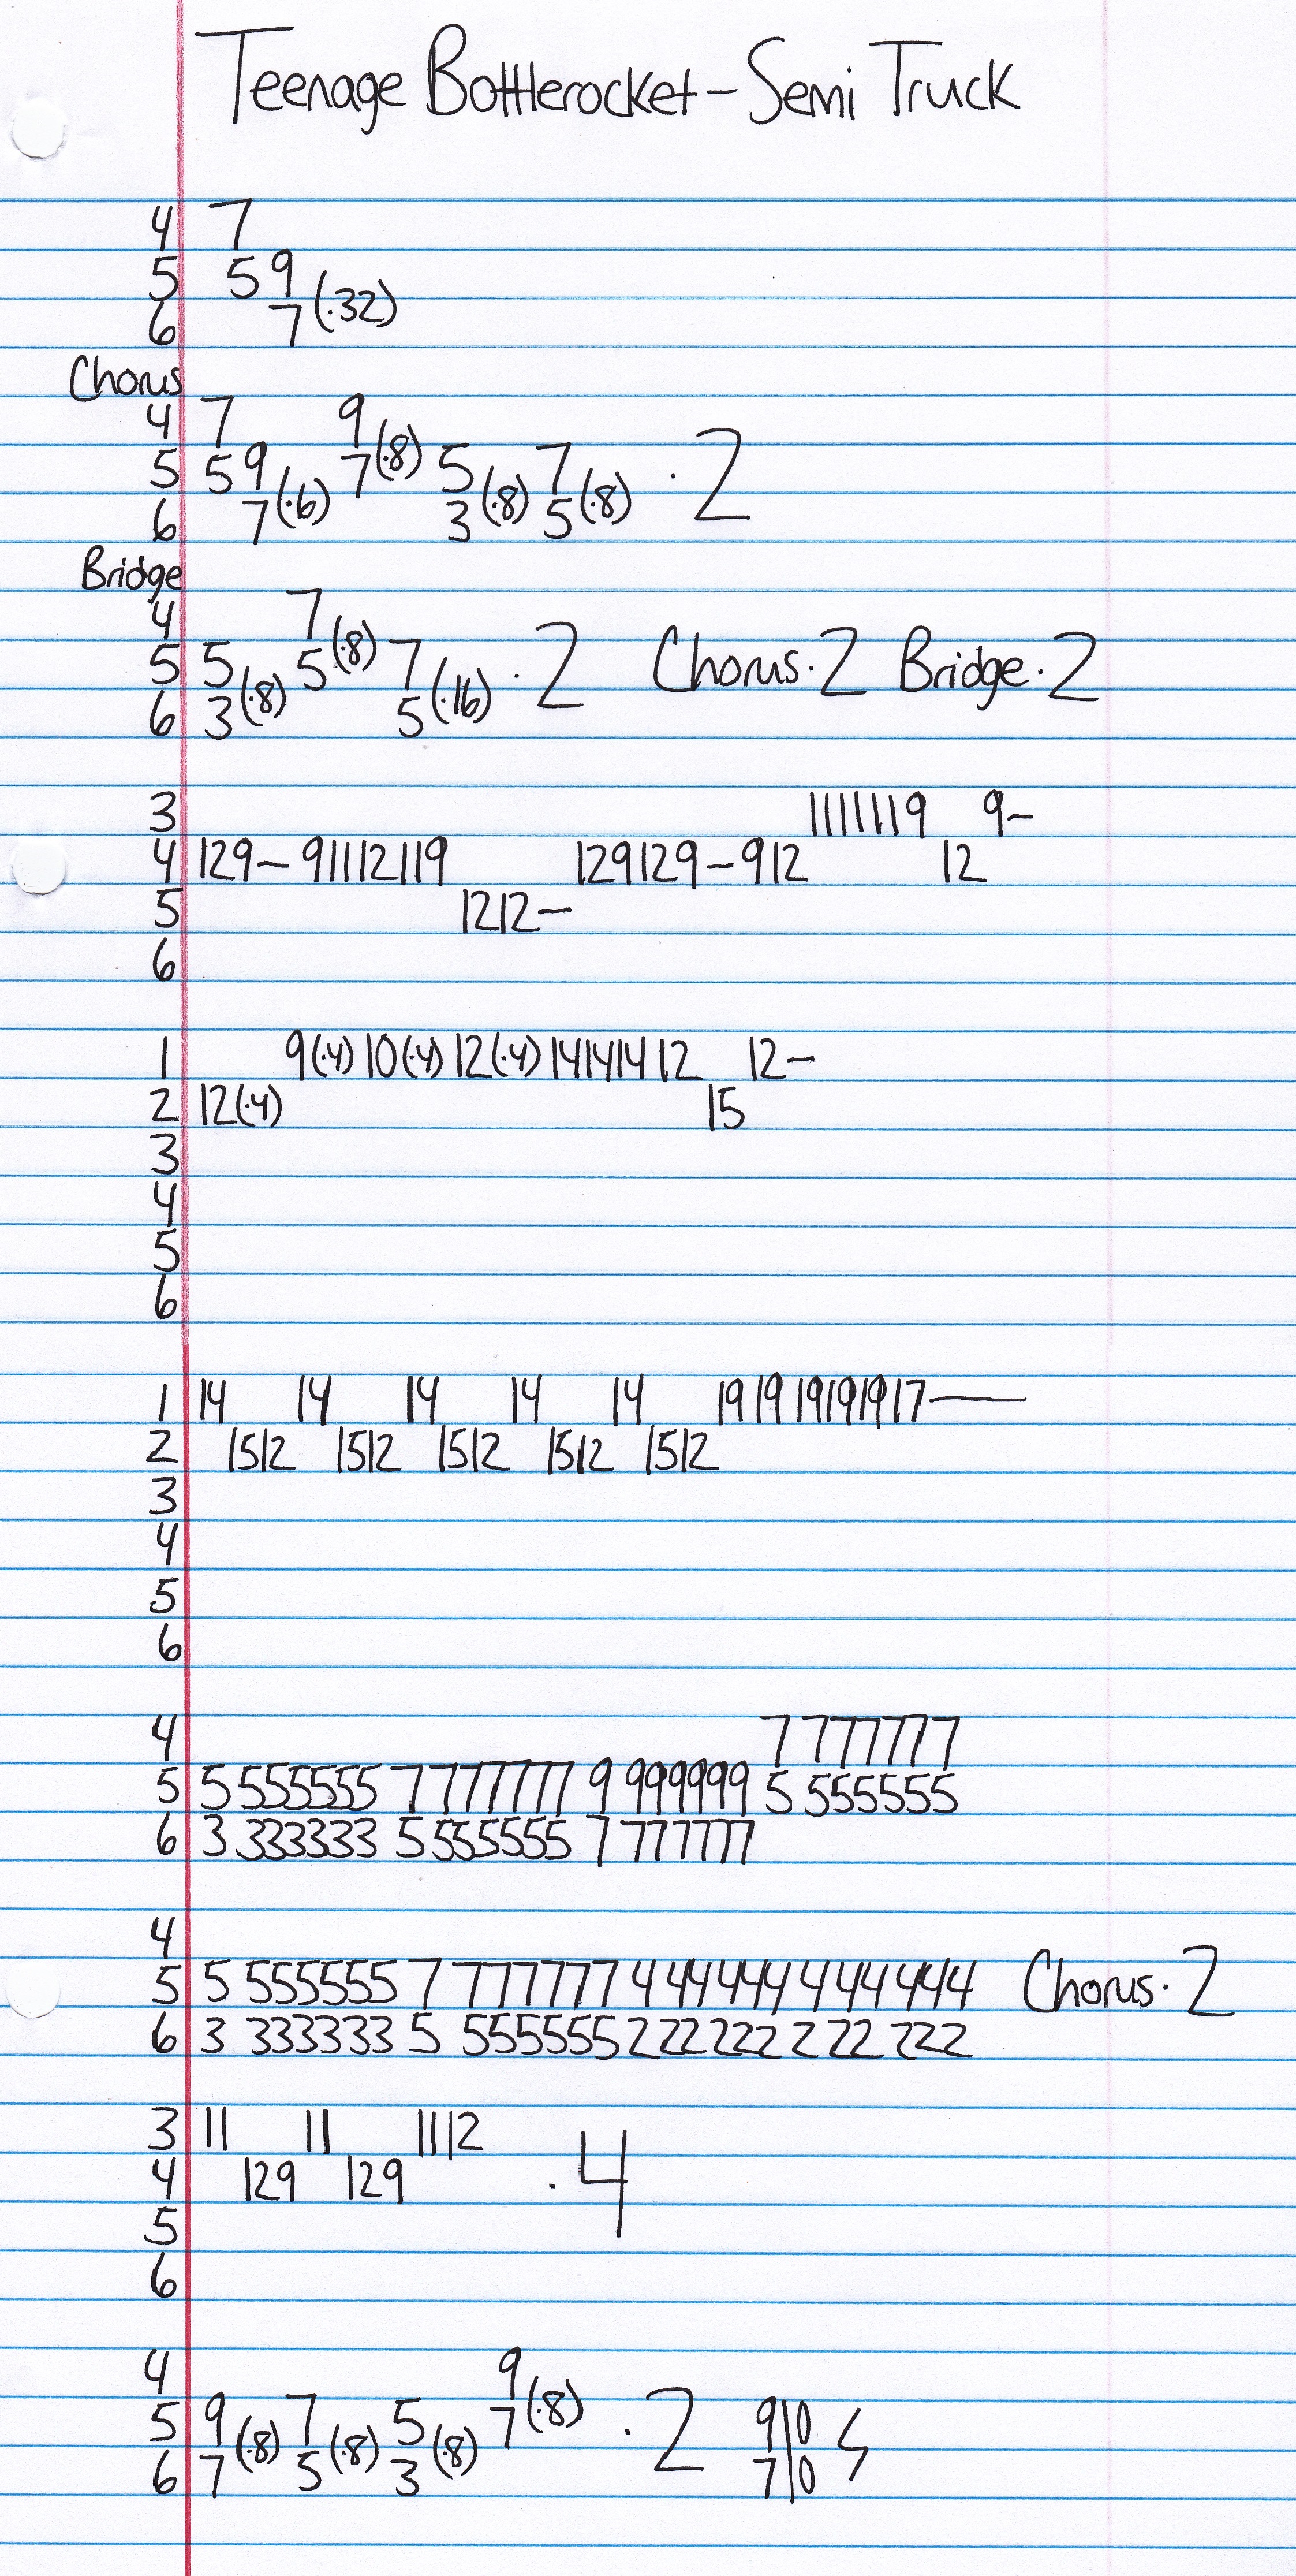 Teenage Bottlerocket - Semi Truck
4 7
5 5 9
6 7 (·32)
Chorus
4 7 9
5 5 9 7 (·8) 5 7 · 2
6 7 (·6) 3 (·8) 5 (·8)
Bridge
4 7
5 5 5 (·8) 7 · 2 Chorus · 2 Bridge · 2
6 3 (·8) 5 (·16)
3 11 11 11 11 9 9-
4 12 9 - 9 11 12 11 9 12 9 12 9 - 9 12 12
5 12 12 -
6
1 9 (·4) 10 (·4) 12 (·4) 14 14 14 12 12 -
2 12 (·4) 15
3
4
5
6
1 14 14 14 14 14 19 19 19 19 19 17 —
2 15 12 15 12 15 12 15 12 15 12
3
4
5
6
4 7 777777
5 5 555555 7 777777 9 999999 5 555555
6 3 333333 5 555555 7 777777
4
5 5 555555 7 777777 4 44 444 4 44 444 Chorus · 2
6 3 333333 5 555555 2 22 222 2 22 222
3 11 11 11 12
4 12 9 12 9 · 4
5
6
4 9
5 9 7 5 7 (·8) · 2 9 | 0
6 7 (·8) 5 (·8) 3 (·8) 7 | 0